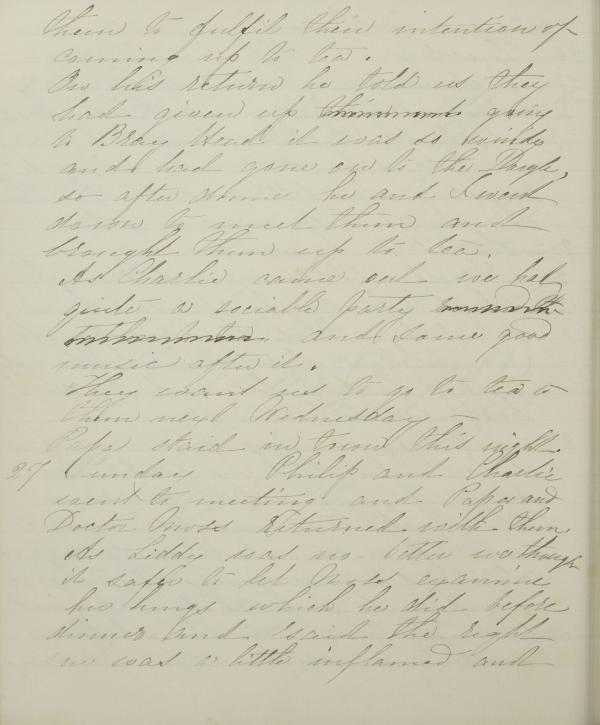 them to fulfil their intention of
coming up to tea.
On his return he told us they
had given up going
to Bray Head it was so windy
and had gone on to the Dargle,
so after dinner he and I went
down to meet them and
brought them up to tea.
As Charlie came out we had
quite a sociable party
and some good
music after it.
They want us to go to tea to
them next Wednesday –
Papa staid in town this night.
27 Sunday Philip and Charlie
went to meeting and Papa and
Doctor Moss returned with them.
As Liddy was no better we though
it safer to let Moss examine
her lungs which he did before
dinner and said the right
one was a little inflamed and